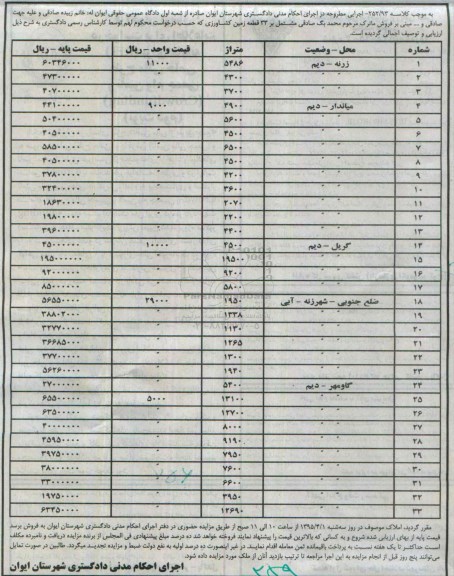 به موجب کلاسه ۲۵۲/۹۳- اجرایی مطروحه در اجرای احکام مدنی دادگستری شهرستان ایوان صادره از شعبه اول دادگاه عمومی حقوقی ایوان له: خانم زبیده صادقی و علیه جهت
صادقی و ... مبنی بر فروش ماترک مرحوم محمد بگ صادقی مشتمل بر ۳۳ قطعه زمین کشاورزی که حسب درخواست محکوم لهم توسط کارشناس رسمی دادگستری به شرح ذیل
ارزیابی و توصیف اجمالی گردیده است.
شماره محل - وضعیت متراژ قیمت واحد - ریال قیمت پایه - ریال
۱ زرنه - دیم ۵۴۸۶ ۱۱۰۰۰ ۶۰۳۴۶۰۰۰
۲ " " ۴۳۰۰ " ۴۷۳۰۰۰۰۰
۳ " " ۳۷۰۰ " ۴۰۷۰۰۰۰۰
۴ میاندار - دیم ۴۹۰۰ ۹۰۰۰ ۴۴۱۰۰۰۰۰
۵ " " ۵۶۰۰ " ۵۰۴۰۰۰۰۰
۶ " " ۴۵۰۰ " ۴۰۵۰۰۰۰۰
۷ " " ۶۵۰۰ " ۵۸۵۰۰۰۰۰
۸ " " ۴۵۰۰ " ۴۰۵۰۰۰۰۰
۹ " " ۴۲۰۰ " ۳۷۸۰۰۰۰۰
۱۰ " " ۳۶۰۰ " ۳۲۴۰۰۰۰۰
۱۱ " " ۲۰۷۰ " ۱۸۶۳۰۰۰۰
۱۲ " " ۲۲۰۰ " ۱۹۸۰۰۰۰۰
۱۳ " " ۴۴۰۰ " ۳۹۶۰۰۰۰۰
۱۴ گریل - دیم ۴۵۰۰ ۱۰۰۰۰ ۴۵۰۰۰۰۰۰
۱۵ " " ۱۹۵۰۰ " ۱۹۵۰۰۰۰۰۰
۱۶ " " ۹۲۰۰ " ۹۲۰۰۰۰۰۰
۱۷ " " ۵۸۰۰ " ۸۵۰۰۰۰۰۰
۱۸ ضلع جنوبی - شهرزنه - آبی ۱۹۵۰ ۲۹۰۰۰ ۵۶۵۵۰۰۰۰
۱۹ " " ۱۳۳۸ " ۳۸۸۰۲۰۰۰
۲۰ " " ۱۱۳۰ " ۳۲۷۷۰۰۰۰
۲۱ " " ۱۲۶۵ " ۳۶۶۸۵۰۰۰
۲۲ " " ۱۳۰۰ " ۳۷۷۰۰۰۰۰
۲۳ " " ۱۹۴۰ " ۵۶۲۶۰۰۰۰
۲۴ گاومهر - دیم ۵۴۰۰ ۲۷۰۰۰۰۰۰
۲۵ " " ۱۳۱۰۰ ۵۰۰۰ ۶۵۵۰۰۰۰۰
۲۶ " " ۱۲۷۰۰ " ۶۳۵۰۰۰۰۰
۲۷ " " ۸۰۰۰ " ۴۰۰۰۰۰۰۰
۲۸ " " ۹۱۹۰ " ۴۵۹۵۰۰۰۰
۲۹ " " ۷۹۵۰ " ۳۹۷۵۰۰۰۰
۳۰ " " ۷۶۰۰ " ۳۸۰۰۰۰۰۰
۳۱ " " ۶۶۰۰ " ۳۳۰۰۰۰۰۰
۳۲ " " ۳۹۵۰ " ۱۹۷۵۰۰۰۰
۳۳ " " ۱۲۶۹۰ " ۶۳۴۵۰۰۰۰
مقرر گردید، املاک موصوف در روز سه‌شنبه ۱۳۹۵/۴/۱ از ساعت ۱۰ الی ۱۱ صبح از طریق مزایده حضوری در دفتر اجرای احکام مدنی دادگستری شهرستان ایوان به فروش برسد
قیمت پایه از بهای ارزیابی شده شروع و به کسانی که بالاترین قیمت را پیشنهاد نمایند فروخته خواهد شد ده درصد مبلغ پیشنهادی فی المجلس از برنده مزایده دریافت و نامبرده مکلف
است حداکثر تا یک هفته نسبت به پرداخت باقیمانده ثمن معامله اقدام نمایند. در غیر اینصورت ده درصد اولیه به نفع دولت ضبط و مزایده تجدید میگردد. طالبین در صورت تمایل
پنج روز قبل از انجام مزایده به این اجرا مراجعه تا ترتیب بازدید آنان از ملک مورد مزایده داده شود.
اجرای احکام مدنی دادگستری شهرستان ایوان